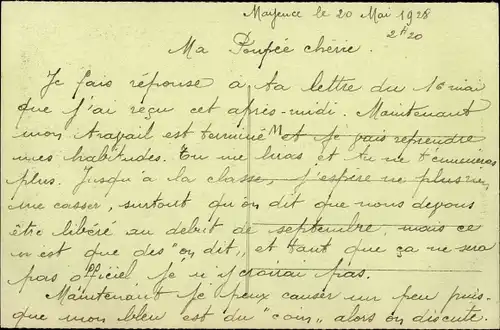 Mayence le 20 Mai 1928
2h20
Ma Poupée chérie.
Je fais réponse à ta lettre du 16 mai
que j'ai reçu cet après-midi. Maintenant
mon travail est terminé et je vais reprendre
mes habitudes. Tu me liras et tu ne t'ennuieras
plus. Jusqu'à la classe, j'espère ne plus rien
me casser, surtout qu'on dit que nous devons
être libéré au debut de septembre, mais ce
n'est que des "on dit", et tant que ça ne sera
pas officiel je n'y croirai pas.
Maintenant je peux causer un peu puis-
que mon bleu est du "coin" alors on discute.